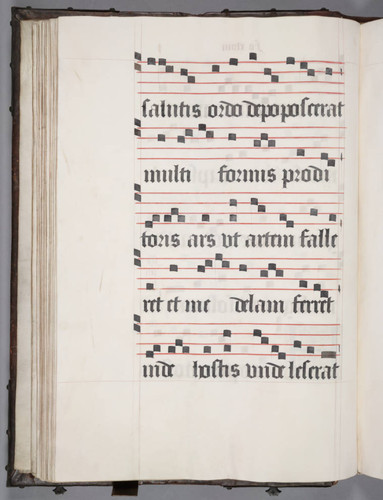 salutis ordo depoposcerat
multi formis prodi
toris ars vt artem falle
ret et me delam ferret
inde hostis vnde leserat